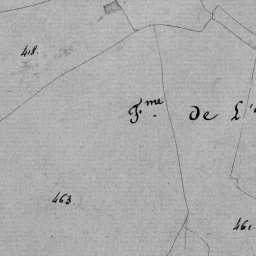 418.
F.me de L'
463.
461.